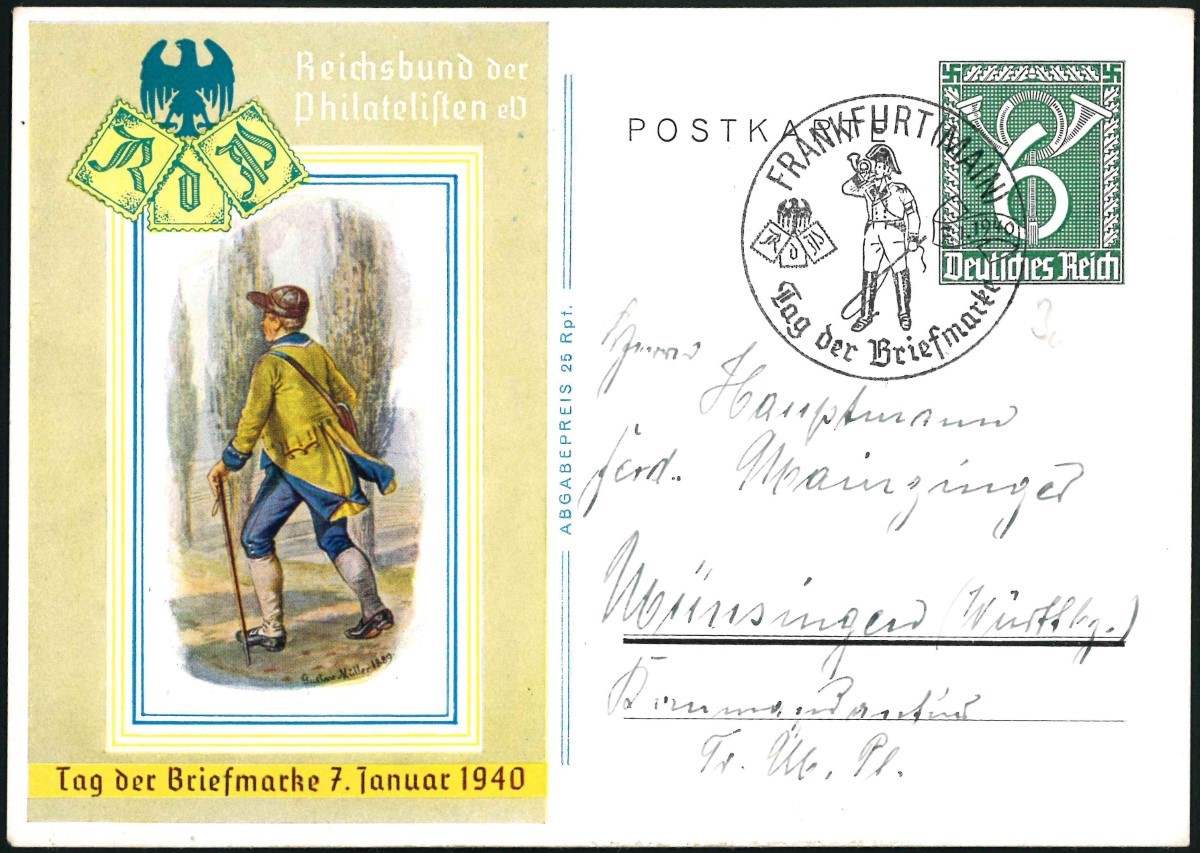 Reichsbund der
Philatelisten eV
R d P
Gustav Müller 1889.
Tag der Briefmarke 7. Januar 1940
ABGABEPREIS 25 Rpf.
POSTKARTE
FRANKFURT (MAIN)
R d P
1940
Tag der Briefmarke
6
Deutsches Reich
Herrn
Hauptmann
Ferd. Mainzinger
Münsingen (Württbg.)
Kommandantur
Tr. Üb. Pl.